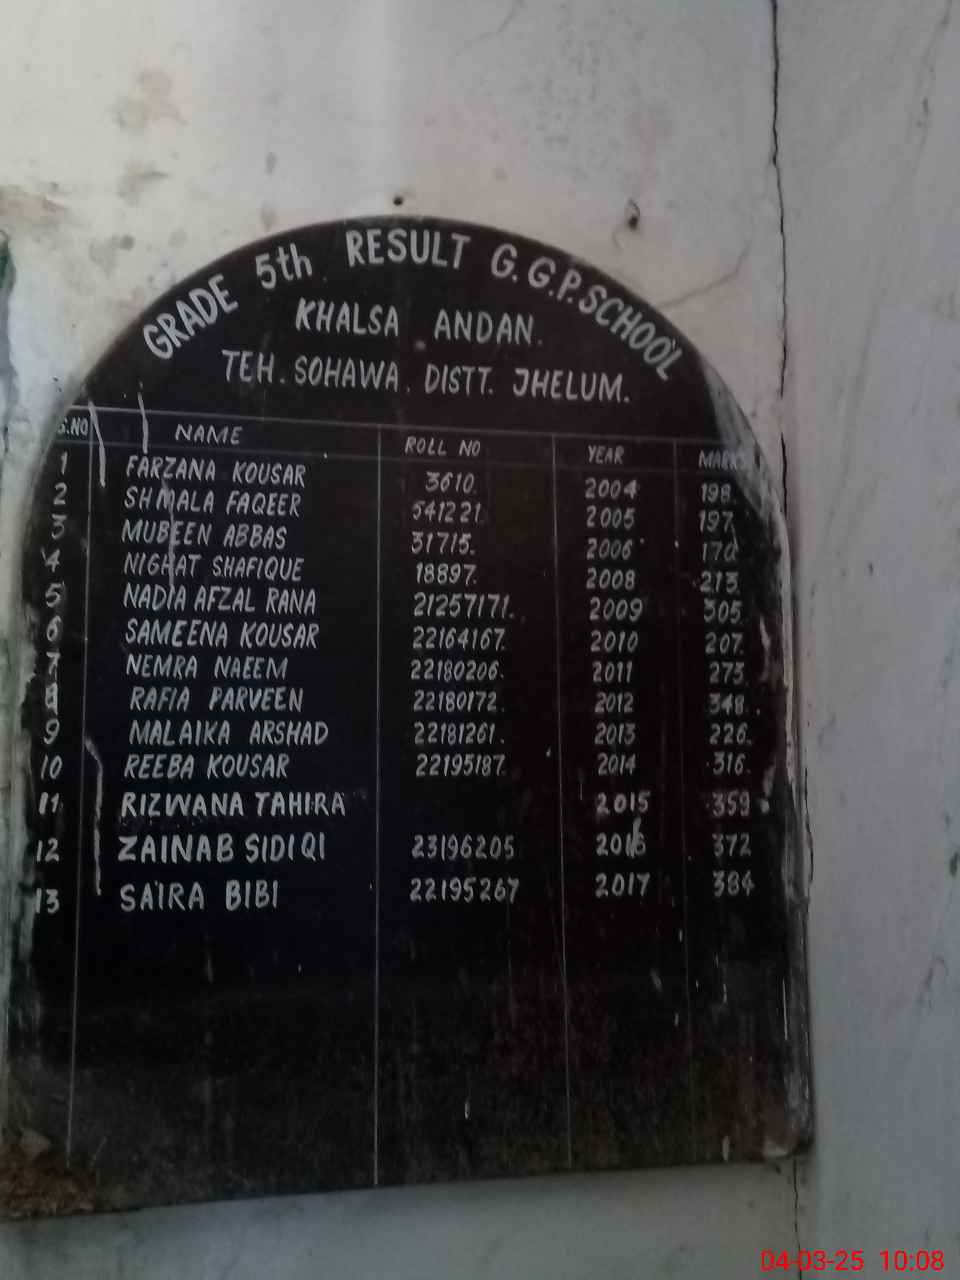 GRADE 5th RESULT G.G.P.SCHOOL
KHALSA ANDAN.
TEH. SOHAWA. DISTT. JHELUM.
S.NO NAME ROLL NO YEAR MARKS
1 FARZANA KOUSAR 3610. 2004 198.
2 SHMALA FAQEER 541221. 2005 197.
3 MUBEEN ABBAS 31715. 2006
4 NIGHAT SHAFIQUE 18897. 2008 213.
5 NADIA AFZAL RANA 21257171. 2009 305.
6 SAMEENA KOUSAR 22164167. 2010 207.
7 NEMRA NAEEM 22180206. 2011 273.
8 RAFIA PARVEEN 22180172. 2012 348.
9 MALAIKA ARSHAD 22181261. 2013 226.
10 REEBA KOUSAR 22195187. 2014 316.
11 RIZWANA TAHIRA 2015 359
12 ZAINAB SIDIQI 23196205 2016 372
13 SAIRA BIBI 22195267 2017 384
04-03-25 10:08